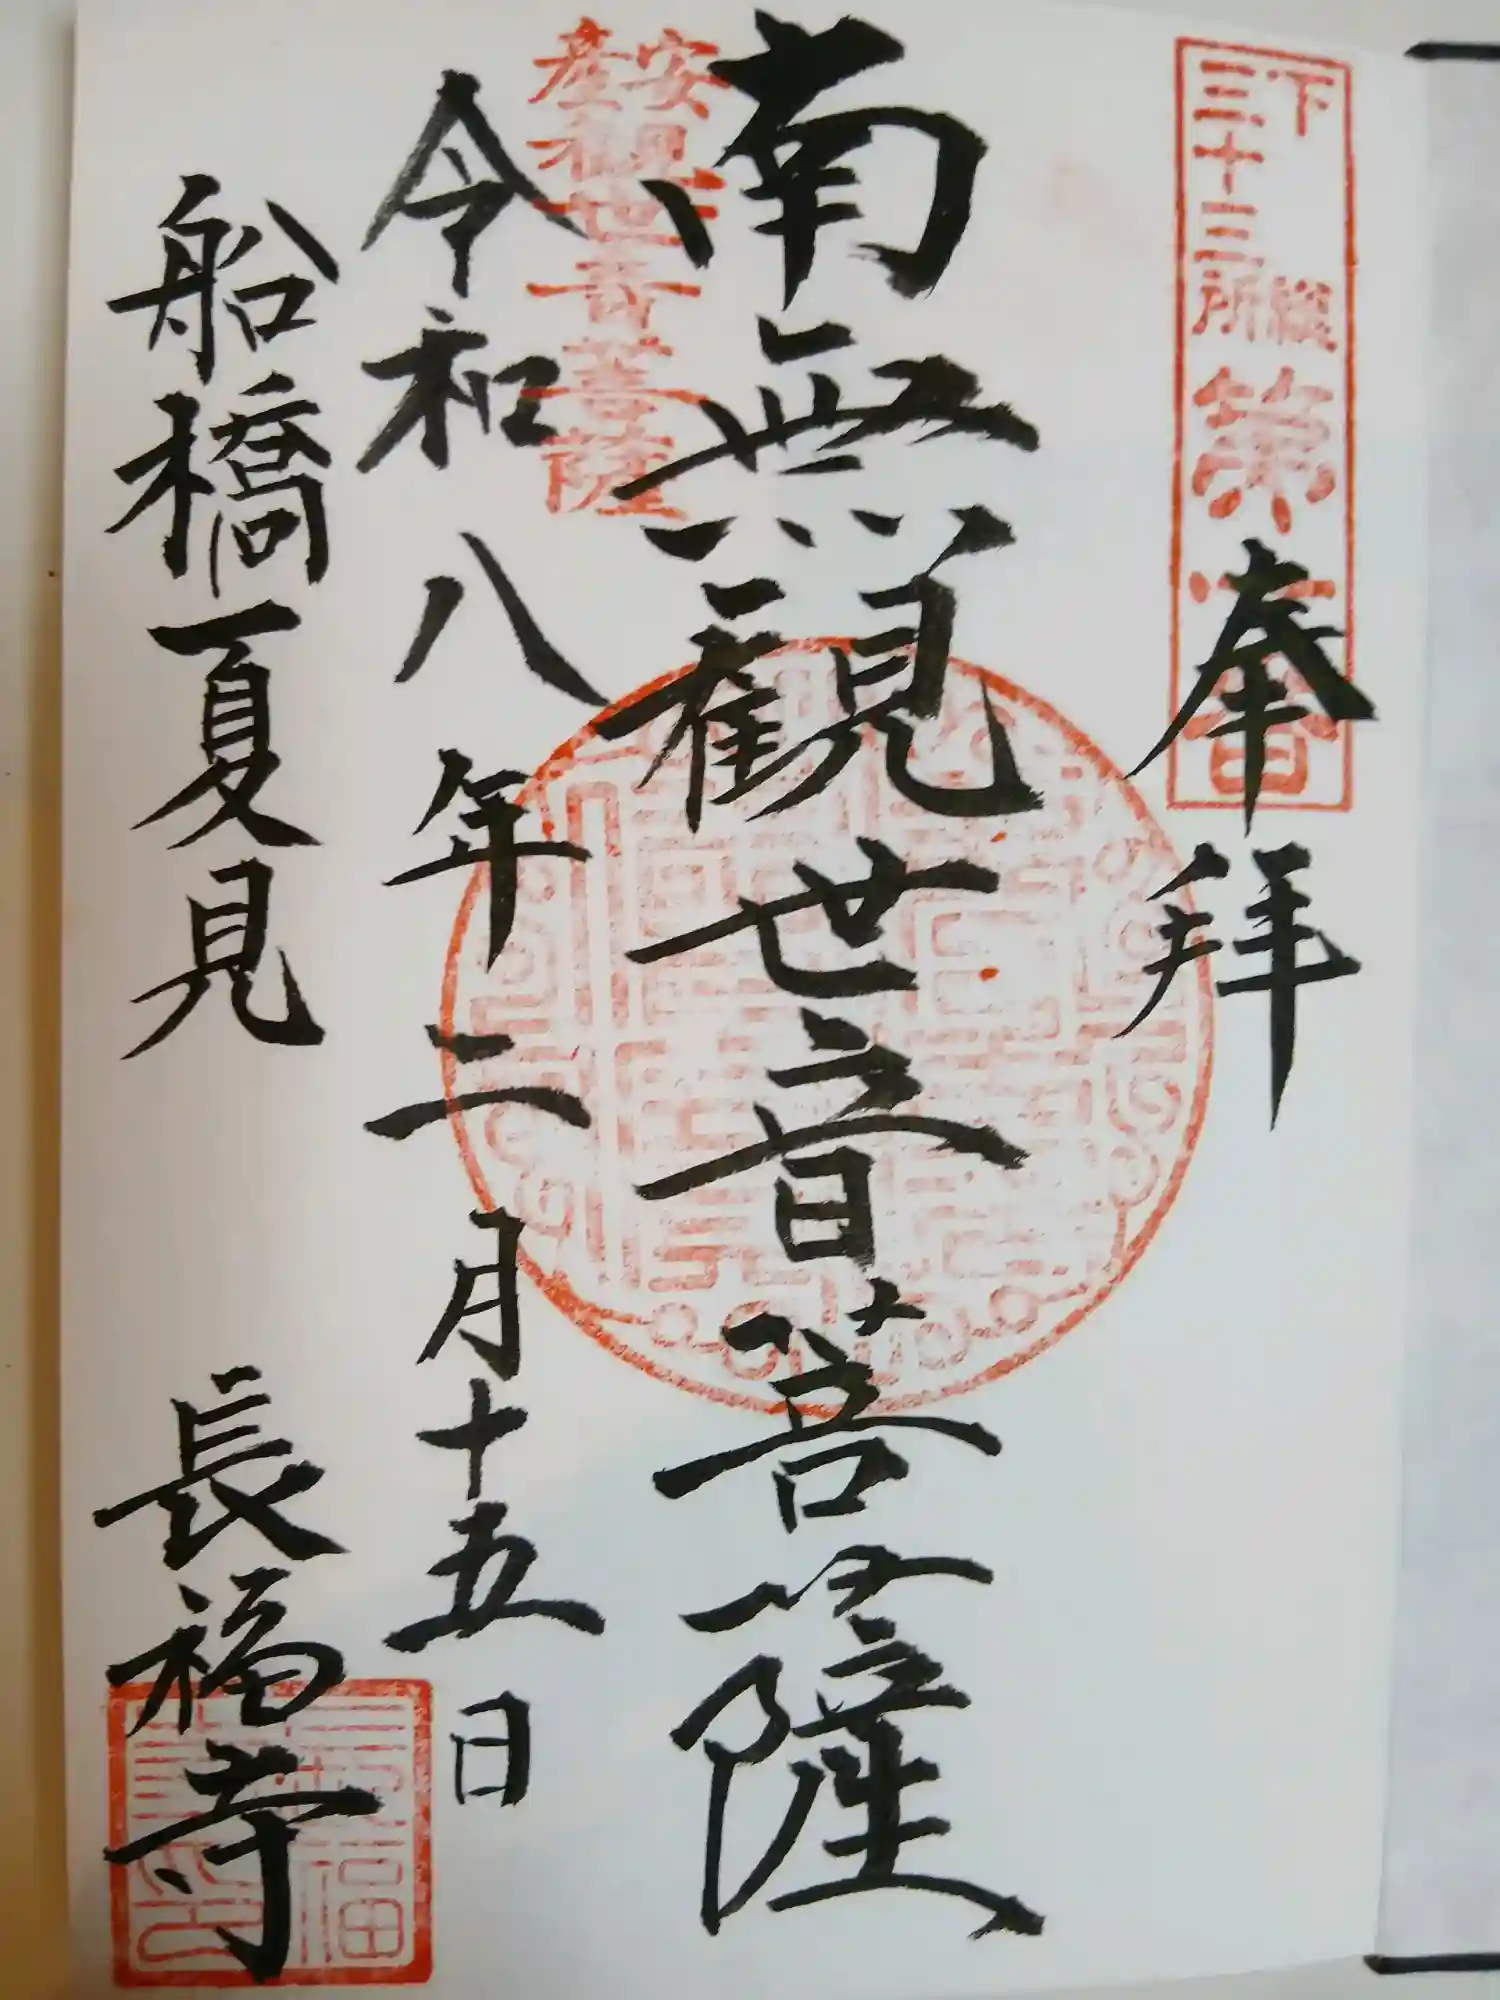 下總
三十三所
第
番
奉拝
南無観世音菩薩
安産観世音菩薩
令和八年二月十五日
船橋夏見　長福寺